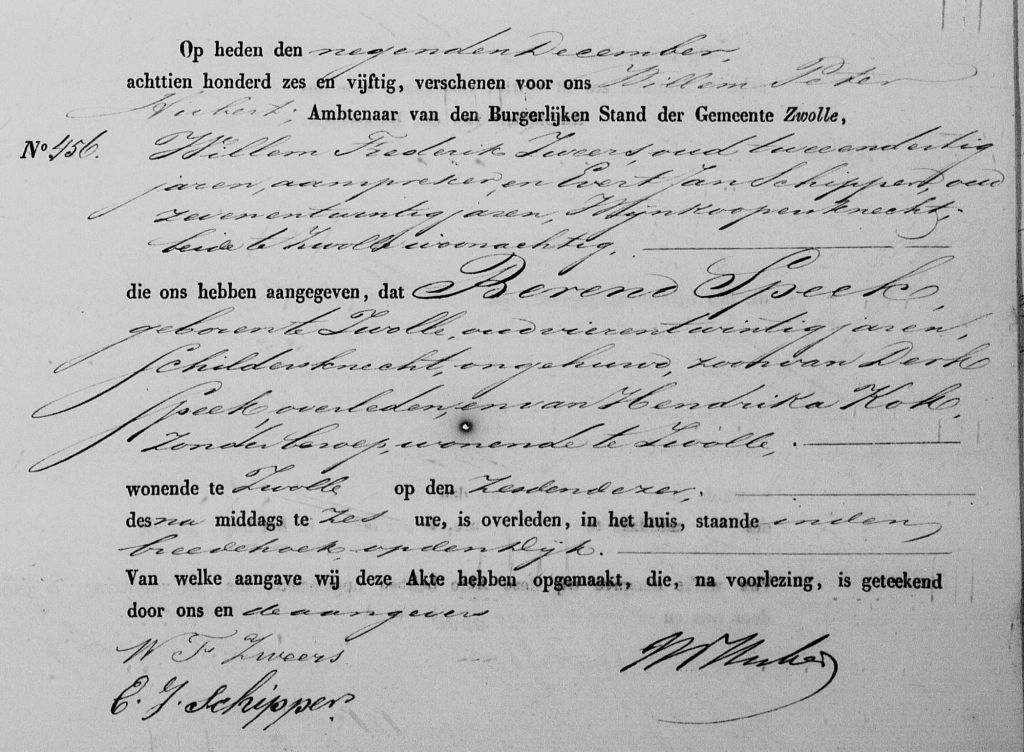 Op heden den negenden December,
achttien honderd zes en vijftig, verschenen voor ons Willem Peter
Hubert, Ambtenaar van den Burgerlijken Stand der Gemeente Zwolle,
No 456. Willem Frederik Zweers, oud tweeendertig
jaren, aanspreker, en Evert Jan Schipper, oud
zevenentwintig jaren, Wynkoopersknecht,
beide te Zwolle woonachtig,
die ons hebben aangegeven, dat Berend Speek,
geboren te Zwolle, oud vierentwintig jaren,
Schildersknecht, ongehuwd, zoon van Derk
Speek, overleden, en van Hendrika Kok,
zonder beroep, wonende te Zwolle,
wonende te Zwolle op den zesden dezer,
des na middags te zes ure, is overleden, in het huis, staande in den
breedehoek op den Dyk.
Van welke aangave wij deze Akte hebben opgemaakt, die, na voorlezing, is geteekend
door ons en de aangevers
W F Zweers
E. J. Schipper